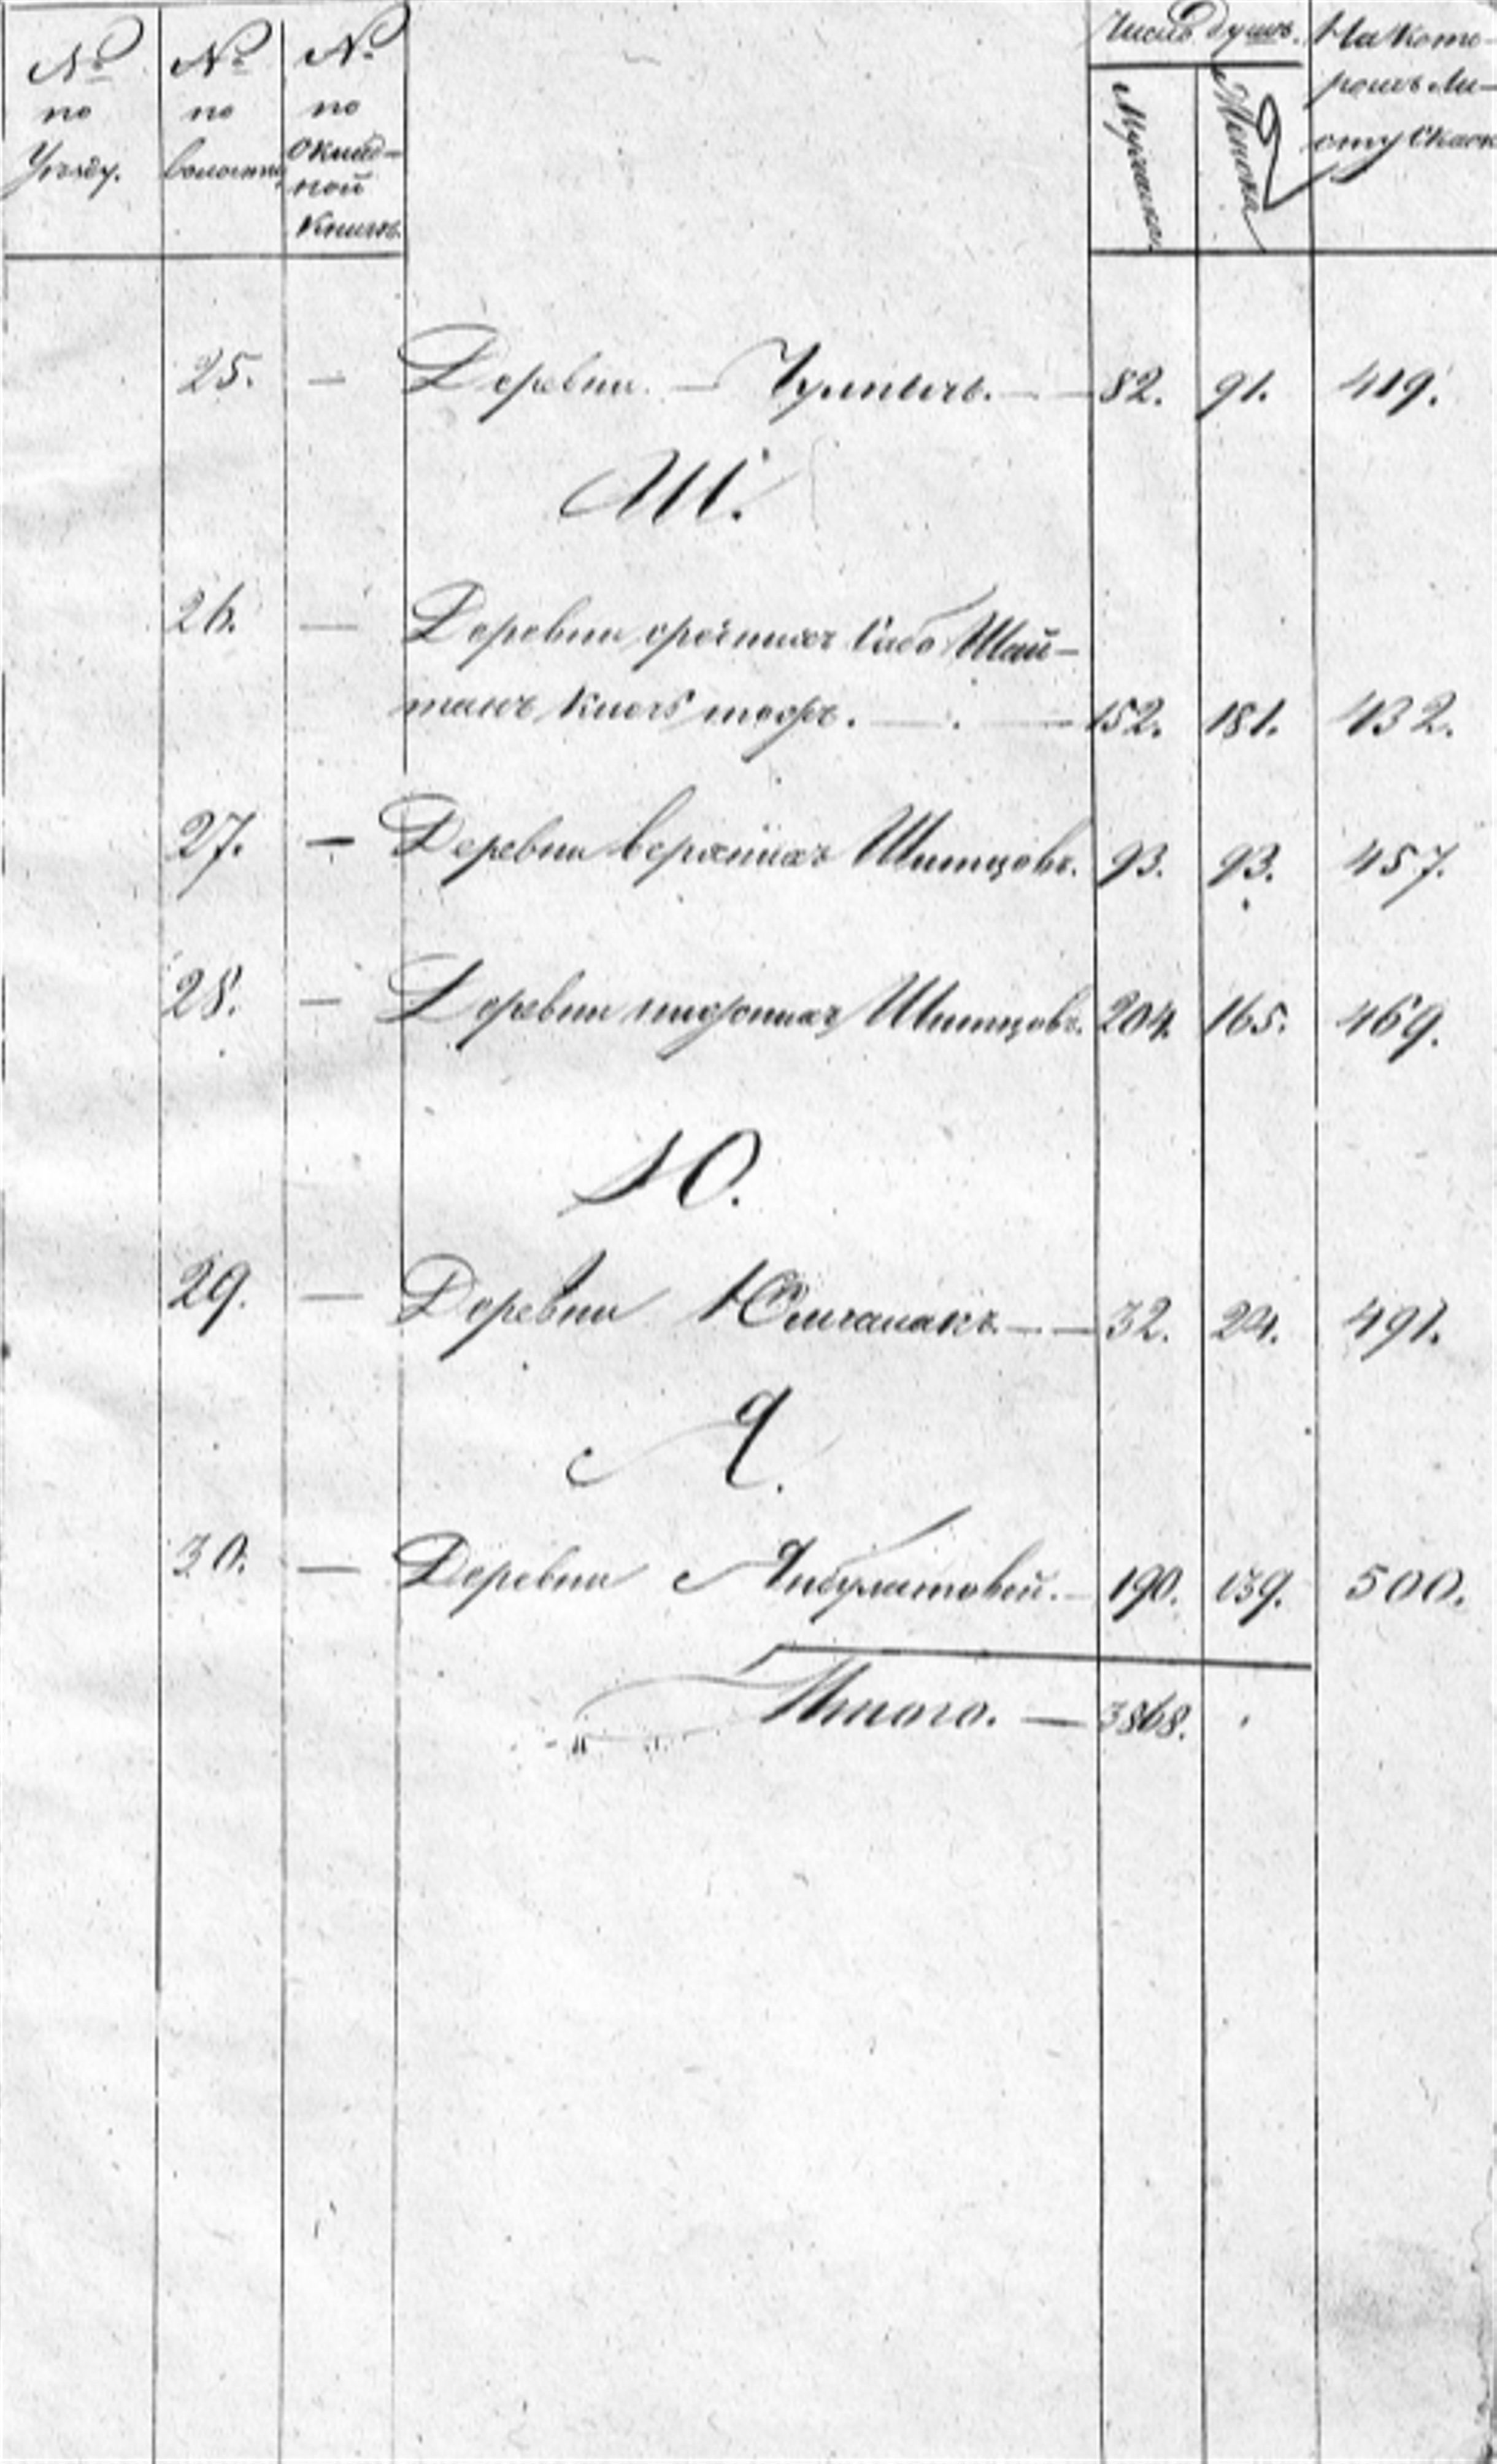 № по Уѣзду.
№ по волости
№ по окладной книгѣ.
Число душъ.
Мужеска
Женска
На кото-
ромъ ли-
сту Сказк
25. — Деревни — Чумпычь. — 82. 91. 419.
Ш.
26. — Деревни среднихъ Шай-
танъ . — 152. 181. 432.
27. — Деревни верхнихъ Шитцовъ. 93. 93. 457.
28. — Деревни нижнихъ Шитцовъ. 204. 165. 469.
Ю.
29. — Деревни — 32. 24. 491.
Я.
30. — Деревни Янбулатовой. — 190. 139. 500.
Итого. — 3868.